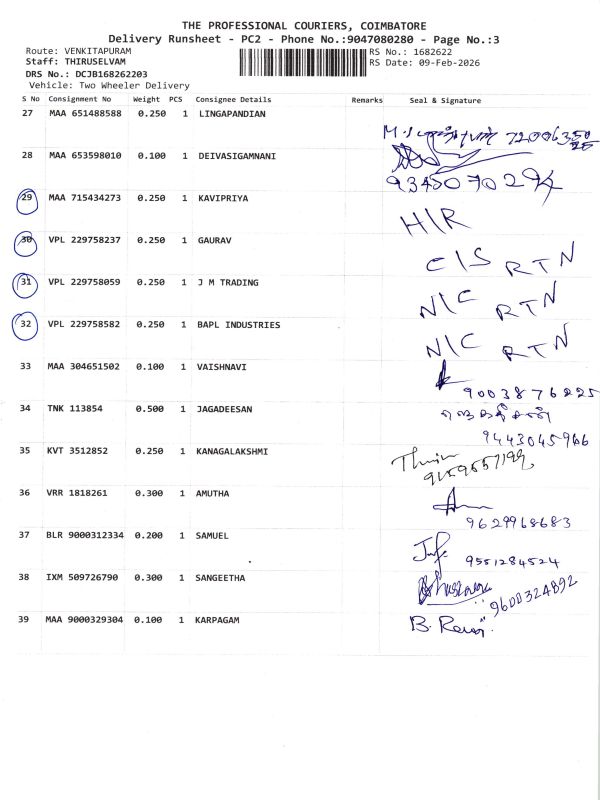 THE PROFESSIONAL COURIERS, COIMBATORE
Delivery Runsheet - PC2 - Phone No.:9047080280 - Page No.:3
Route: VENKITAPURAM
RS No.: 1682622
Staff: THIRUSELVAM
RS Date: 09-Feb-2026
DRS No.: DCJB168262203
Vehicle: Two Wheeler Delivery
S No Consignment No Weight PCS Consignee Details Remarks Seal & Signature
27 MAA 651488588 0.250 1 LINGAPANDIAN
28 MAA 653598010 0.100 1 DEIVASIGAMNANI
9345070294
29 MAA 715434273 0.250 1 KAVIPRIYA H/R
30 VPL 229758237 0.250 1 GAURAV C/S RTN
31 VPL 229758059 0.250 1 J M TRADING N/C RTN
32 VPL 229758582 0.250 1 BAPL INDUSTRIES N/C RTN
33 MAA 304651502 0.100 1 VAISHNAVI
9003876225
34 TNK 113854 0.500 1 JAGADEESAN
9443045966
35 KVT 3512852 0.250 1 KANAGALAKSHMI
36 VRR 1818261 0.300 1 AMUTHA
9629968683
37 BLR 9000312334 0.200 1 SAMUEL
9551284524
38 IXM 509726790 0.300 1 SANGEETHA
9600324892
39 MAA 9000329304 0.100 1 KARPAGAM